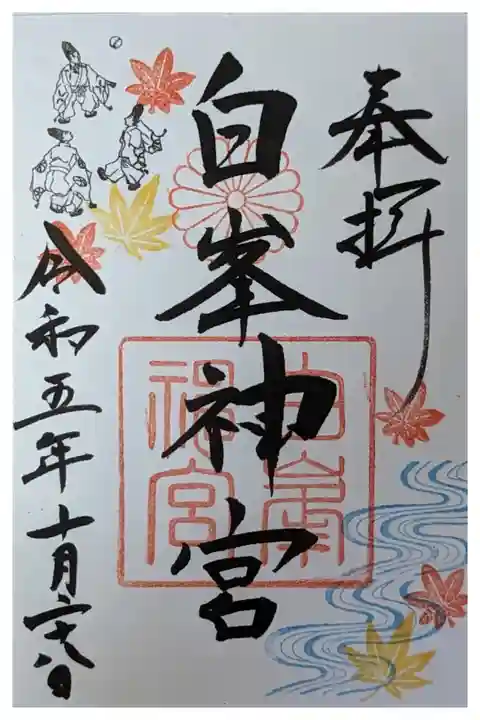 奉拝
白峯神宮
白峯神宮
令和五年十月二十八日